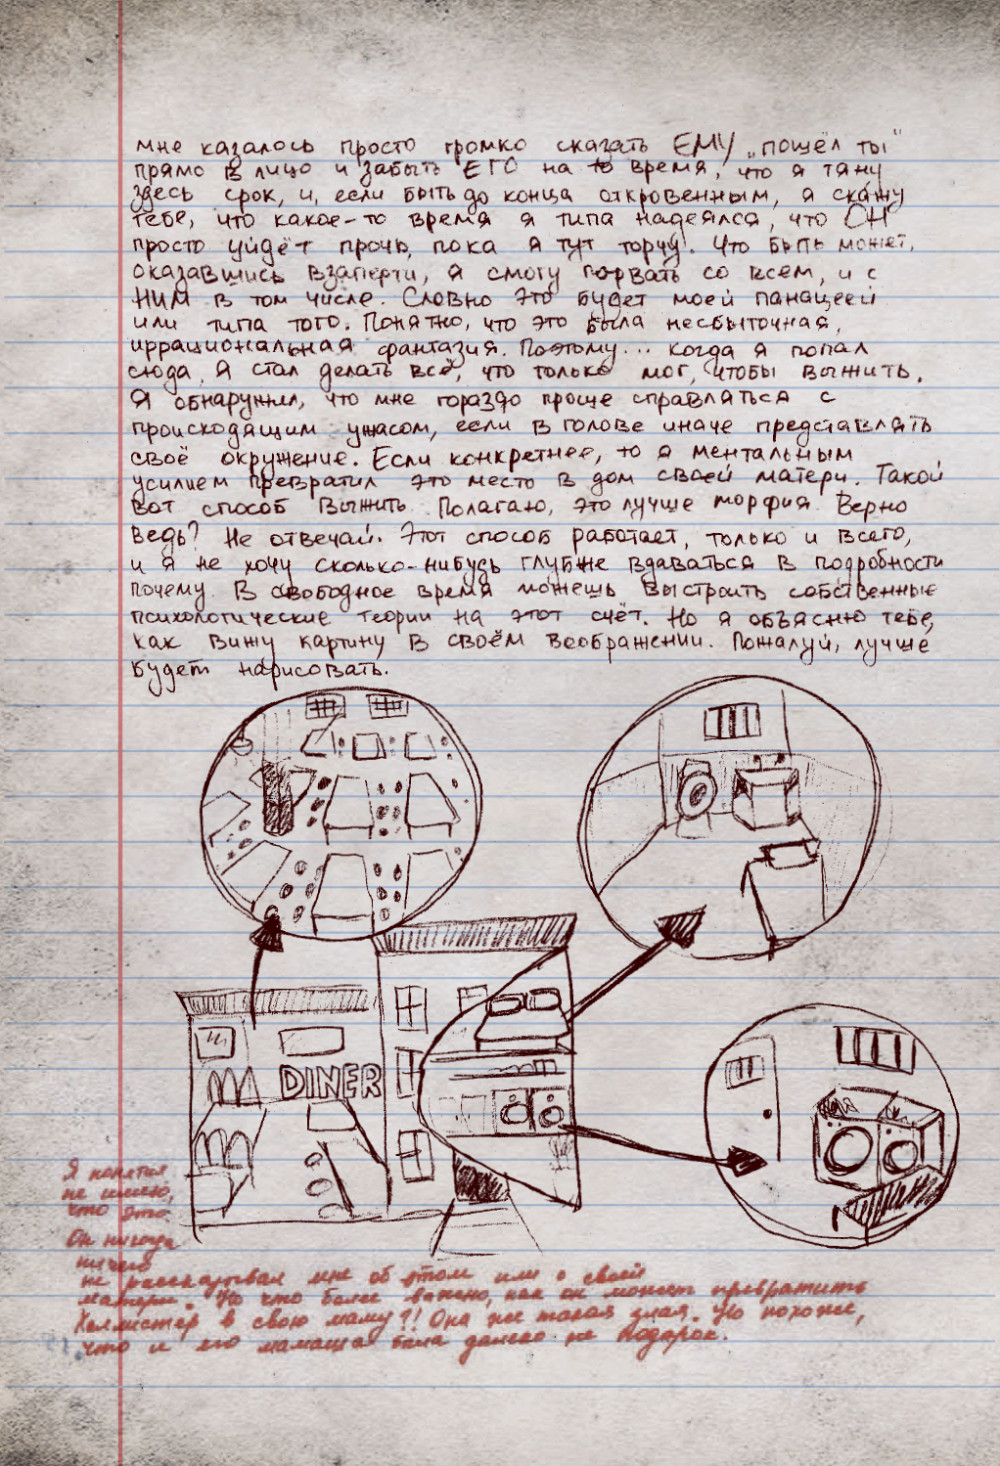 мне казалось просто громко сказать ЕМУ „пошёл ты"
прямо в лицо и забыть ЕГО на то время, что я тяну
здесь срок, и, если быть до конца откровенным, я скажу
тебе, что какое-то время я типа надеялся, что ОН
просто уйдёт прочь, пока я тут торчу. Что быть может,
оказавшись взаперти, я смогу порвать со всем, и с
НИМ в том числе. Словно это будет моей панацеей
или типа того. Понятно, что это была несбыточная,
иррациональная фантазия. Поэтому... когда я попал
сюда, я стал делать всё, что только мог, чтобы выжить.
Я обнаружил, что мне гораздо проще справляться с
происходящим ужасом, если в голове иначе представлять
своё окружение. Если конкретнее, то я ментальным
усилием превратил это место в дом своей матери. Такой
вот способ выжить. Полагаю, это лучше морфия. Верно
ведь? Не отвечай. Этот способ работает, только и всего,
и я не хочу сколько-нибудь глубже вдаваться в подробности
почему. В свободное время можешь выстроить собственные
психологические теории на этот счёт. Но я объясню тебе,
как вижу картину в своём воображении. Пожалуй, лучше
будет нарисовать.
DINER
Я понятия
не имею,
что это.
Он никогда
ничего
не рассказывал мне об этом или о своей
матери. Но что более важно, как он может превратить
Холлистер в свою маму?! Она же такая злая. Но похоже,
что и его мамаша была далеко не подарок.